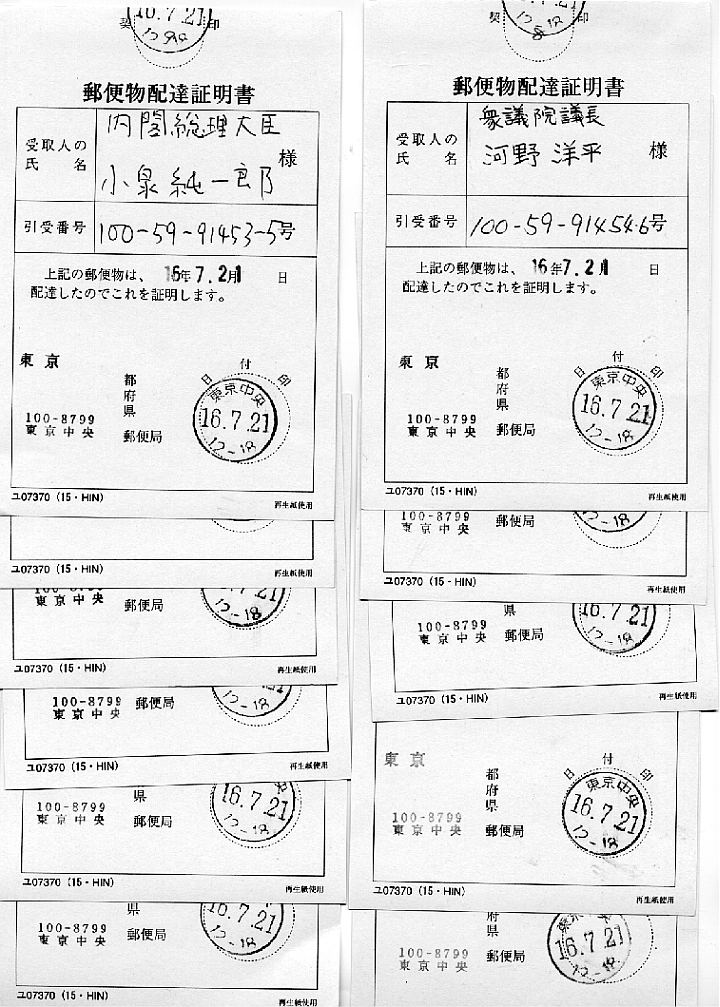 16.7.21
12-18
契 印
郵便物配達証明書
受取人の
氏 名
内閣総理大臣
小泉純一郎 様
引受番号 100-59-91453-5号
上記の郵便物は、 16年7.2月1 日
配達したのでこれを証明します。
東京
都
府
県
100-8799
東京中央 郵便局
日 付 印
東京中央
16.7.21
12-18
ユ07370 (15・HIN) 再生紙使用
ユ07370 (15・HIN) 再生紙使用
100-8799
東京中央 郵便局
7.21
12-18
ユ07370 (15・HIN) 再生紙使用
100-8799
東京中央 郵便局
12-18
ユ07370 (15・HIN) 再生紙使用
県
100-8799
東京中央 郵便局
16.7.21
12-18
ユ07370 (15・HIN) 再生紙使用
県
100-8799
東京中央 郵便局
16.7.21
12-18
ユ07370 (15・HIN) 再生紙使用
契 印
郵便物配達証明書
受取人の
氏 名
衆議院議長
河野洋平 様
引受番号 100-59-91454-6号
上記の郵便物は、 16年7.2月1 日
配達したのでこれを証明します。
東京
都
府
県
100-8799
東京中央 郵便局
日 付 印
東京中央
16.7.21
12-18
ユ07370 (15・HIN) 再生紙使用
100-8799
東京中央 郵便局
12-18
ユ07370 (15・HIN) 再生紙使用
県
100-8799
東京中央 郵便局
16.7.21
12-18
ユ07370 (15・HIN) 再生紙使用
東京
都
府
県
100-8799
東京中央 郵便局
日 付 印
東京中央
16.7.21
12-18
ユ07370 (15・HIN) 再生紙使用
府
県
100-8799
東京中央 郵便局
16.7.21
12-18